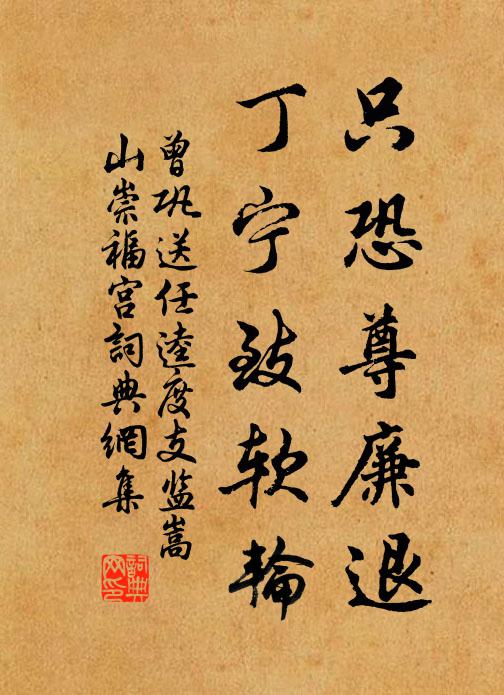 只恐尊廉退
丁宁致软轮
曾巩送任逵度支监嵩
山崇福宫词典網集
詞典网印